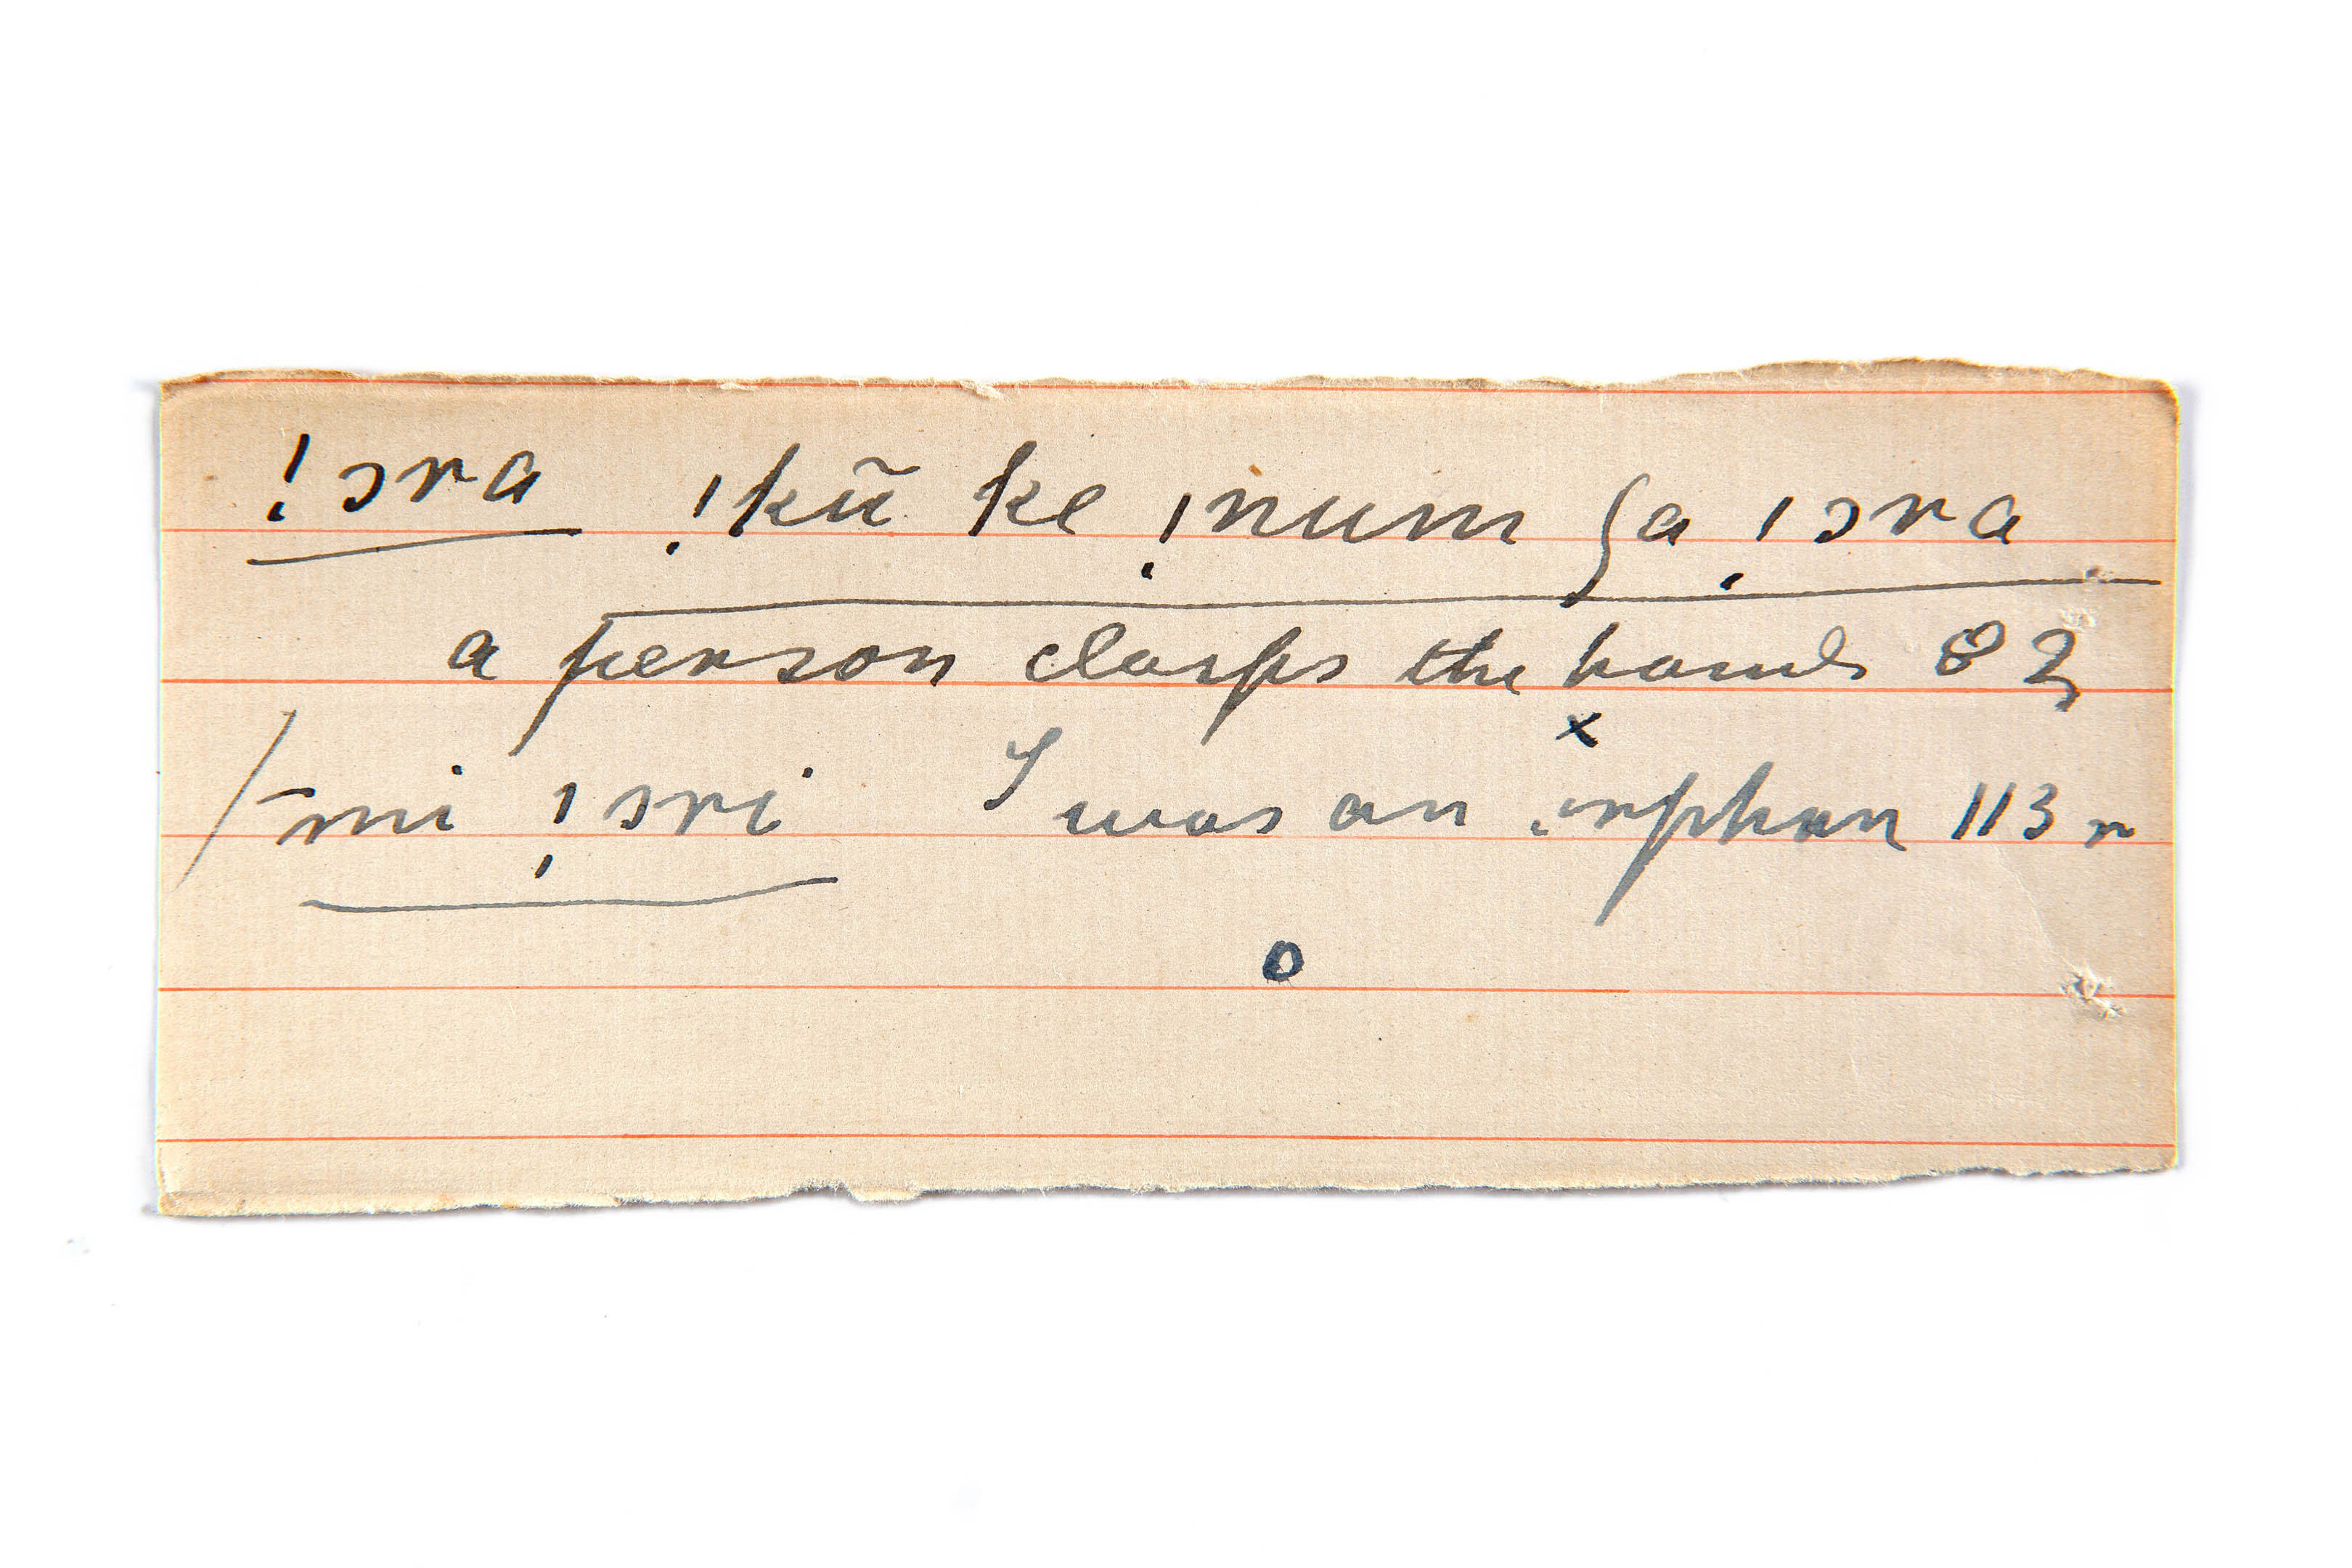 !ɔra !kũ ke !num ʃa !ɔra
a person clasps the hands 82
mi !ɔri I was an orphan 113 r
x
o